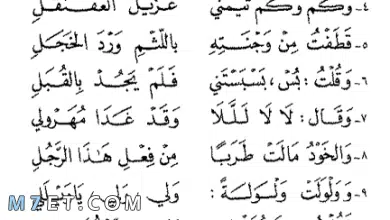 ٤- وَكَمْ وَكَمْ تَيَّمَنِي غُزَيِّلٌ العَقَنْقَلِ
٥- قَطَفْتُ مِنْ وَجْنَتِهِ بِاللَّثْمِ وَرْدَ الخَجَلِ
٦- وَقُلْتُ : بُسْ ، بَسْبَسْتَنِي فَلَمْ يَجُدْ بِالقُبَلِ
٧- وَقَالَ : لَا لَا لَلَلَا وَقَدْ غَدَا مُهَرْوِلِي
٨- وَالخَوْدُ مَالَتْ طَرَبًا مِنْ فِعْلِ هَذَا الرَّجُلِ
٩- وَوَلْوَلَتْ وَلْوَلَةً : وَلِي
MZET.COM